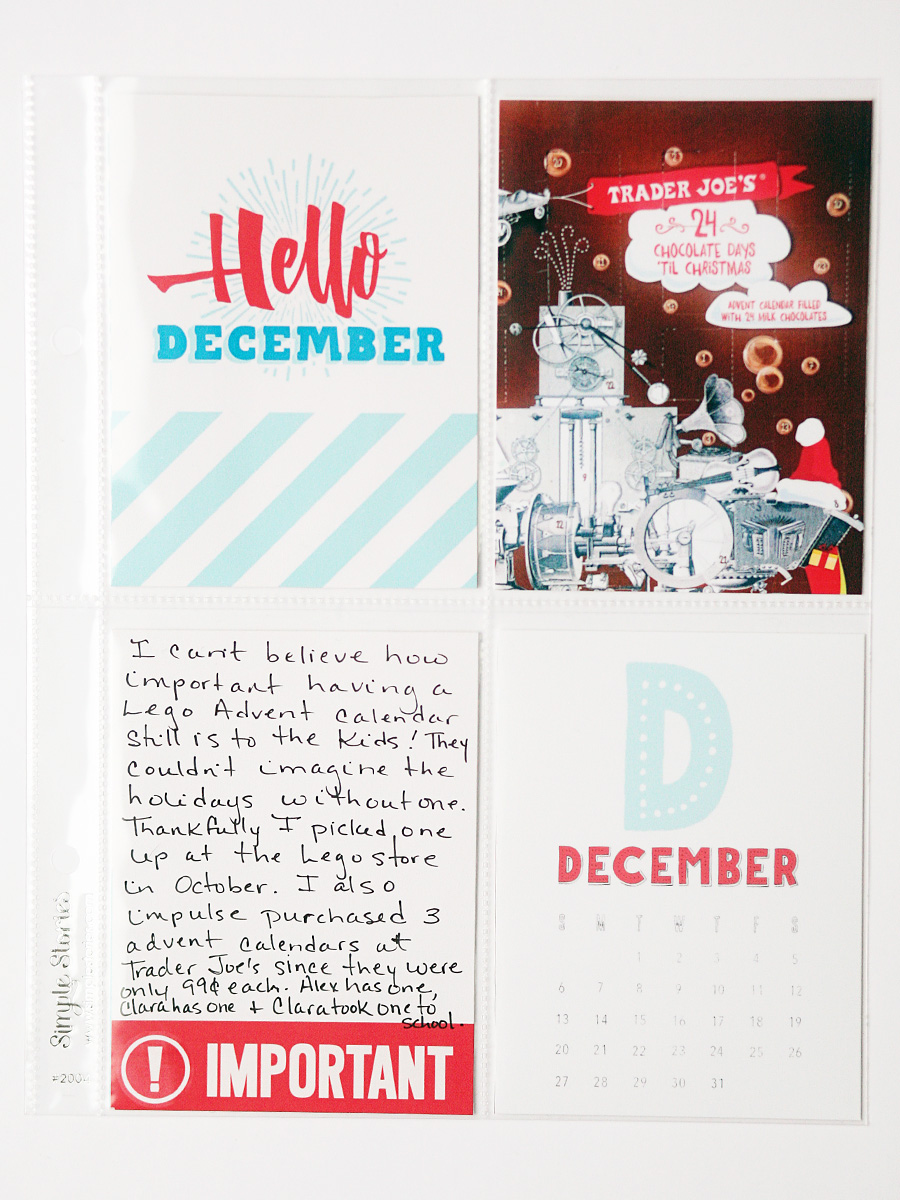 Hello
DECEMBER
TRADER JOE'S®
24
CHOCOLATE DAYS
'TIL CHRISTMAS
ADVENT CALENDAR FILLED
WITH 24 MILK CHOCOLATES
22
9
12
21
8
I can't believe how
important having a
Lego Advent calendar
still is to the kids! They
couldn't imagine the
holidays without one.
Thankfully I picked one
up at the Lego store
in October. I also
impulse purchased 3
advent calendars at
Trader Joe's since they were
only 99¢ each. Alex has one,
Clara has one + Clara took one to
school.
! IMPORTANT
D
DECEMBER
S M T W T F S
1 2 3 4 5
6 7 8 9 10 11 12
13 14 15 16 17 18 19
20 21 22 23 24 25 26
27 28 29 30 31
Simple Stories